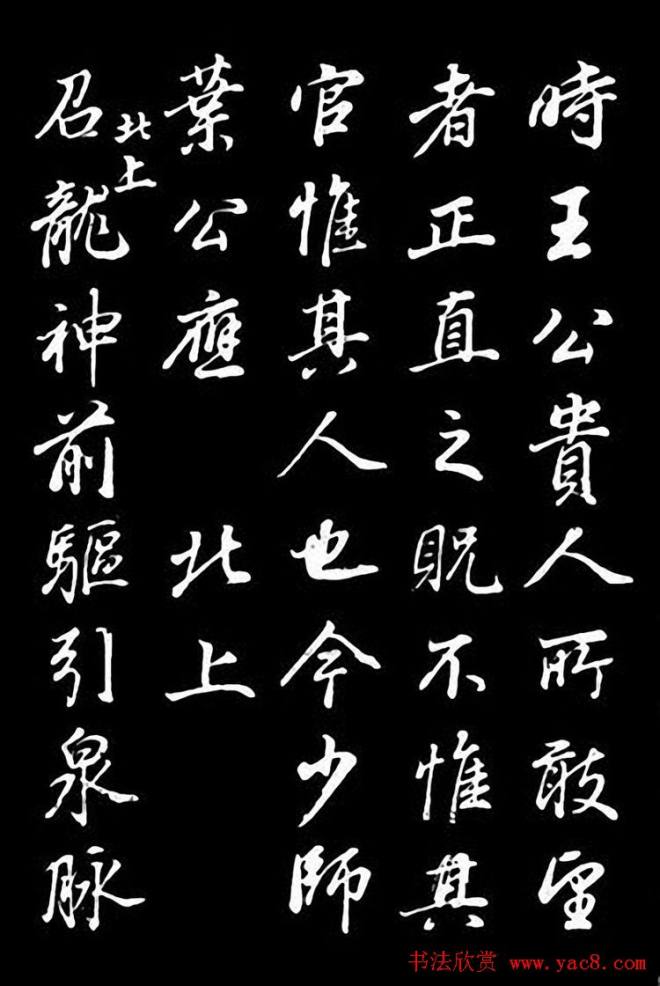 時王公貴人所敢望
者正直之貺不惟其
官惟其人也今少師
葉公應 北上
北上
召龍神前驅引泉脉
书法欣赏 www.yac8.com